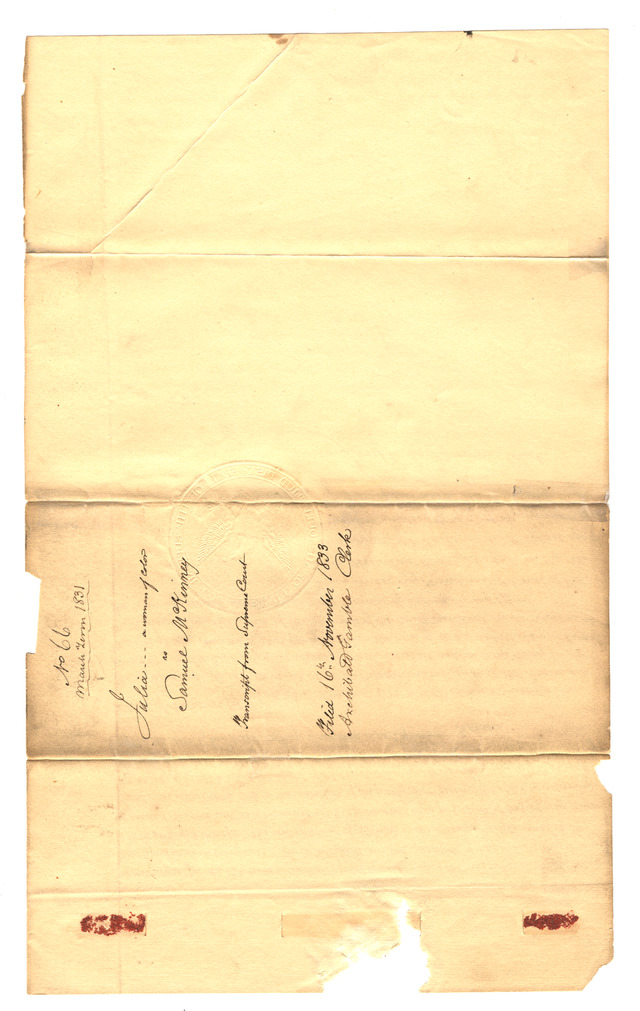 No 66
March Term 1831
Julia --- a woman of color
vs
Samuel McKinney
Transcript from Supreme Court
Filed 16th November 1833
Archibald Gamble Clerk